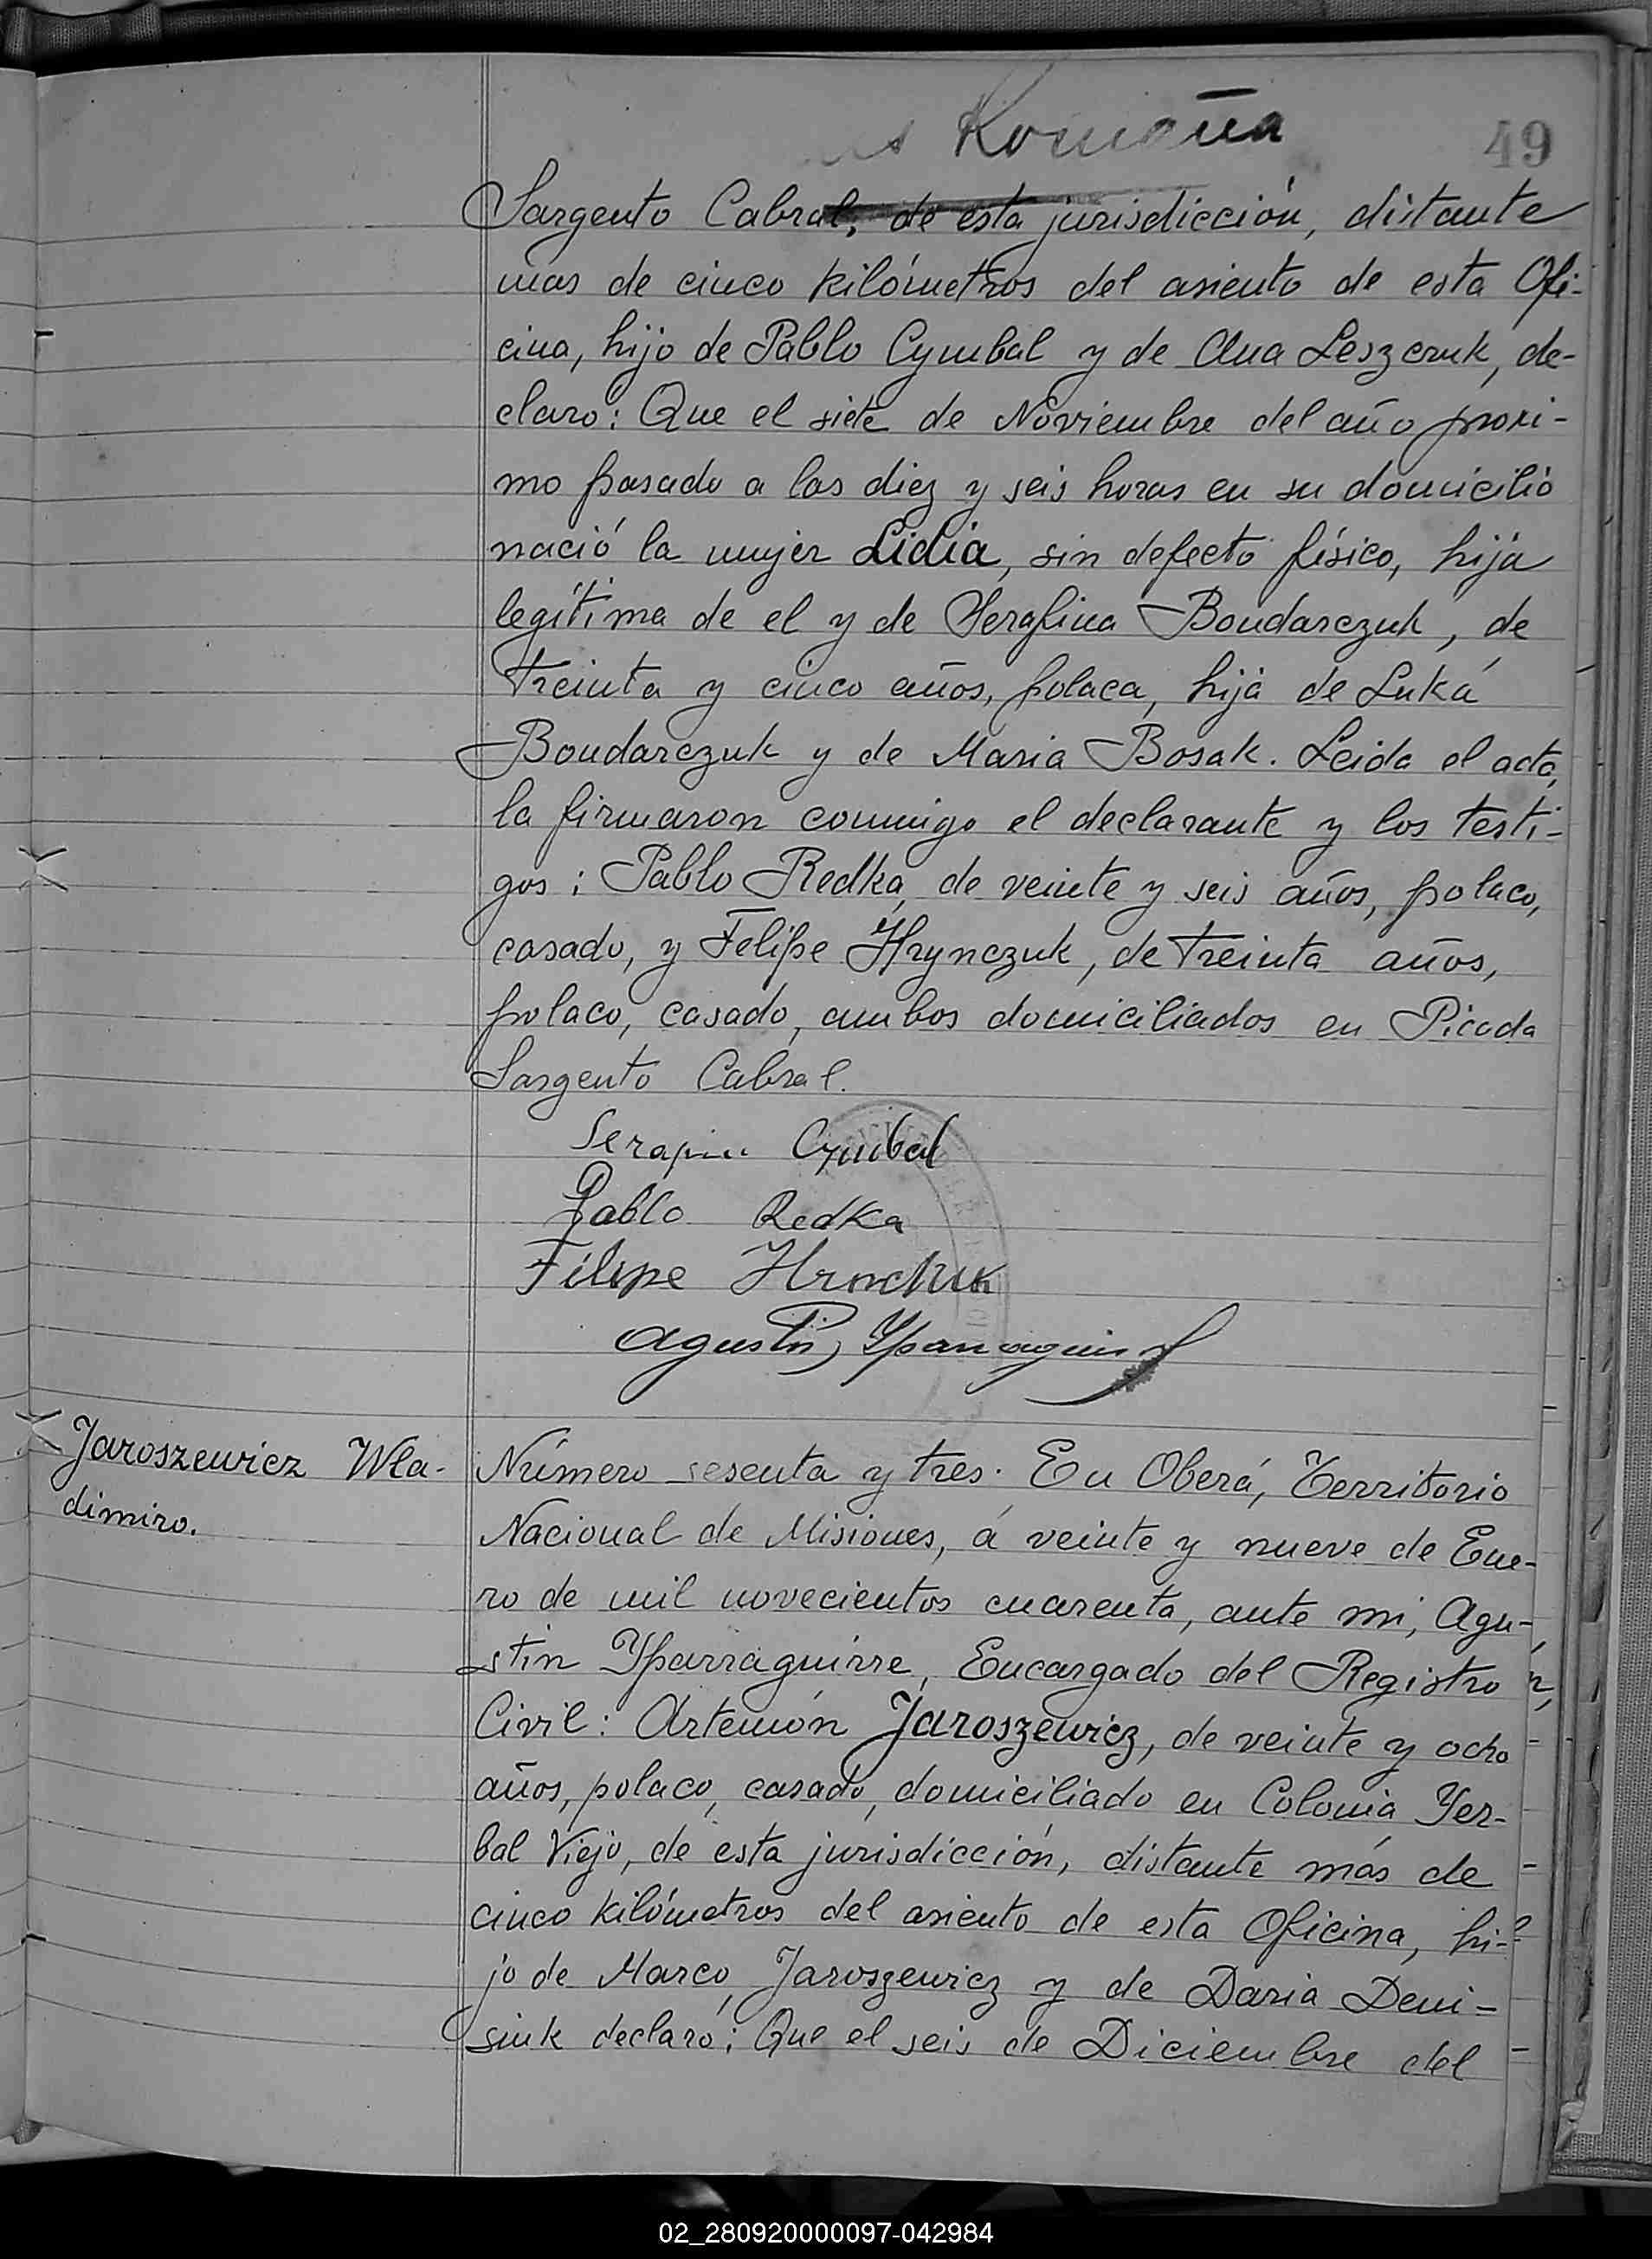 Romaña
49
Sargento Cabral, de esta jurisdicción, distante
mas de cinco kilómetros del asiento de esta Ofi-
cina, hijo de Pablo Cymbal y de Ana Leszczuk, de-
claro: Que el siete de Noviembre del año proxi-
mo pasado a las diez y seis horas en su domicilio
nació la mujer Lidia, sin defecto físico, hija
legítima de el y de Serafina Bondarczuk, de
treinta y cinco años, polaca, hija de Luká
Bondarczuk y de Maria Bosak. Leida el acta,
la firmaron conmigo el declarante y los testi-
gos: Pablo Redka, de veinte y seis años, polaco,
casado, y Felipe Hrynczuk, de treinta años,
polaco, casado, ambos domiciliados en Picada
Sargento Cabral.
Cymbal
Pablo Redka
Filipe Hrnchuk
Agustin Yparraguirre
Jaroszewicz Wla-
dimiro.
Número sesenta y tres. En Oberá, Territorio
Nacional de Misiones, á veinte y nueve de Ene-
ro de mil novecientos cuarenta, ante mi, Agu-
stin Yparraguirre, Encargado del Registro
Civil: Artemón Jaroszewicz, de veinte y ocho
años, polaco, casado, domiciliado en Colonia Yer-
bal Viejo, de esta jurisdicción, distante más de
cinco kilómetros del asiento de esta Oficina, hi-
jo de Marco Jaroszewicz y de Daria Deni-
siuk declaró: Que el seis de Diciembre del
02_280920000097-042984